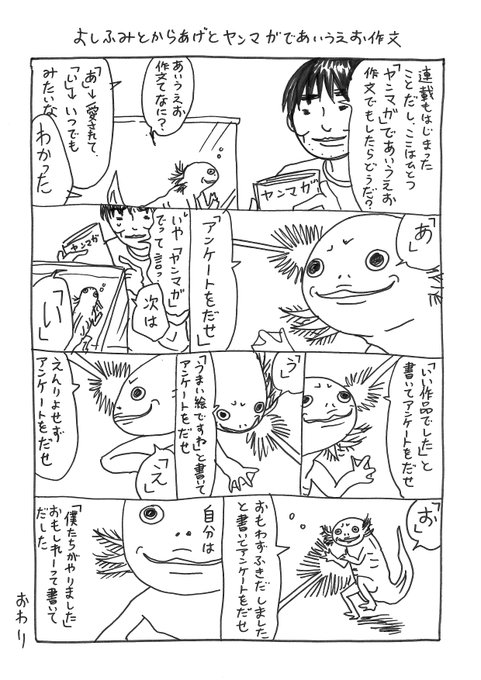 よしふみとからあげとヤンマガであいうえお作文
連載もはじまった
ことだし、ここはひとつ
「ヤンマガ」であいうえお
作文でもしたらどうだ?
ヤンマガ
あいうえお
作文てなに?
「あ」→愛されて、
「い」→いつでも
みたいな
わかった
「あ」
「アンケートをだせ」
いや「ヤンマガ」
でって言っ
ヤンマガ
次は
「い」
「いい作品でした」と
書いてアンケートをだせ
「う」
「うまい絵ですわ」と書いて
アンケートをだせ
「え」
えんりょせず
アンケートをだせ
「お」
おもわずふきだしました
と書いてアンケートをだせ
自分は
「僕たちがやりました」
おもしれーって書いて
だした
おわり